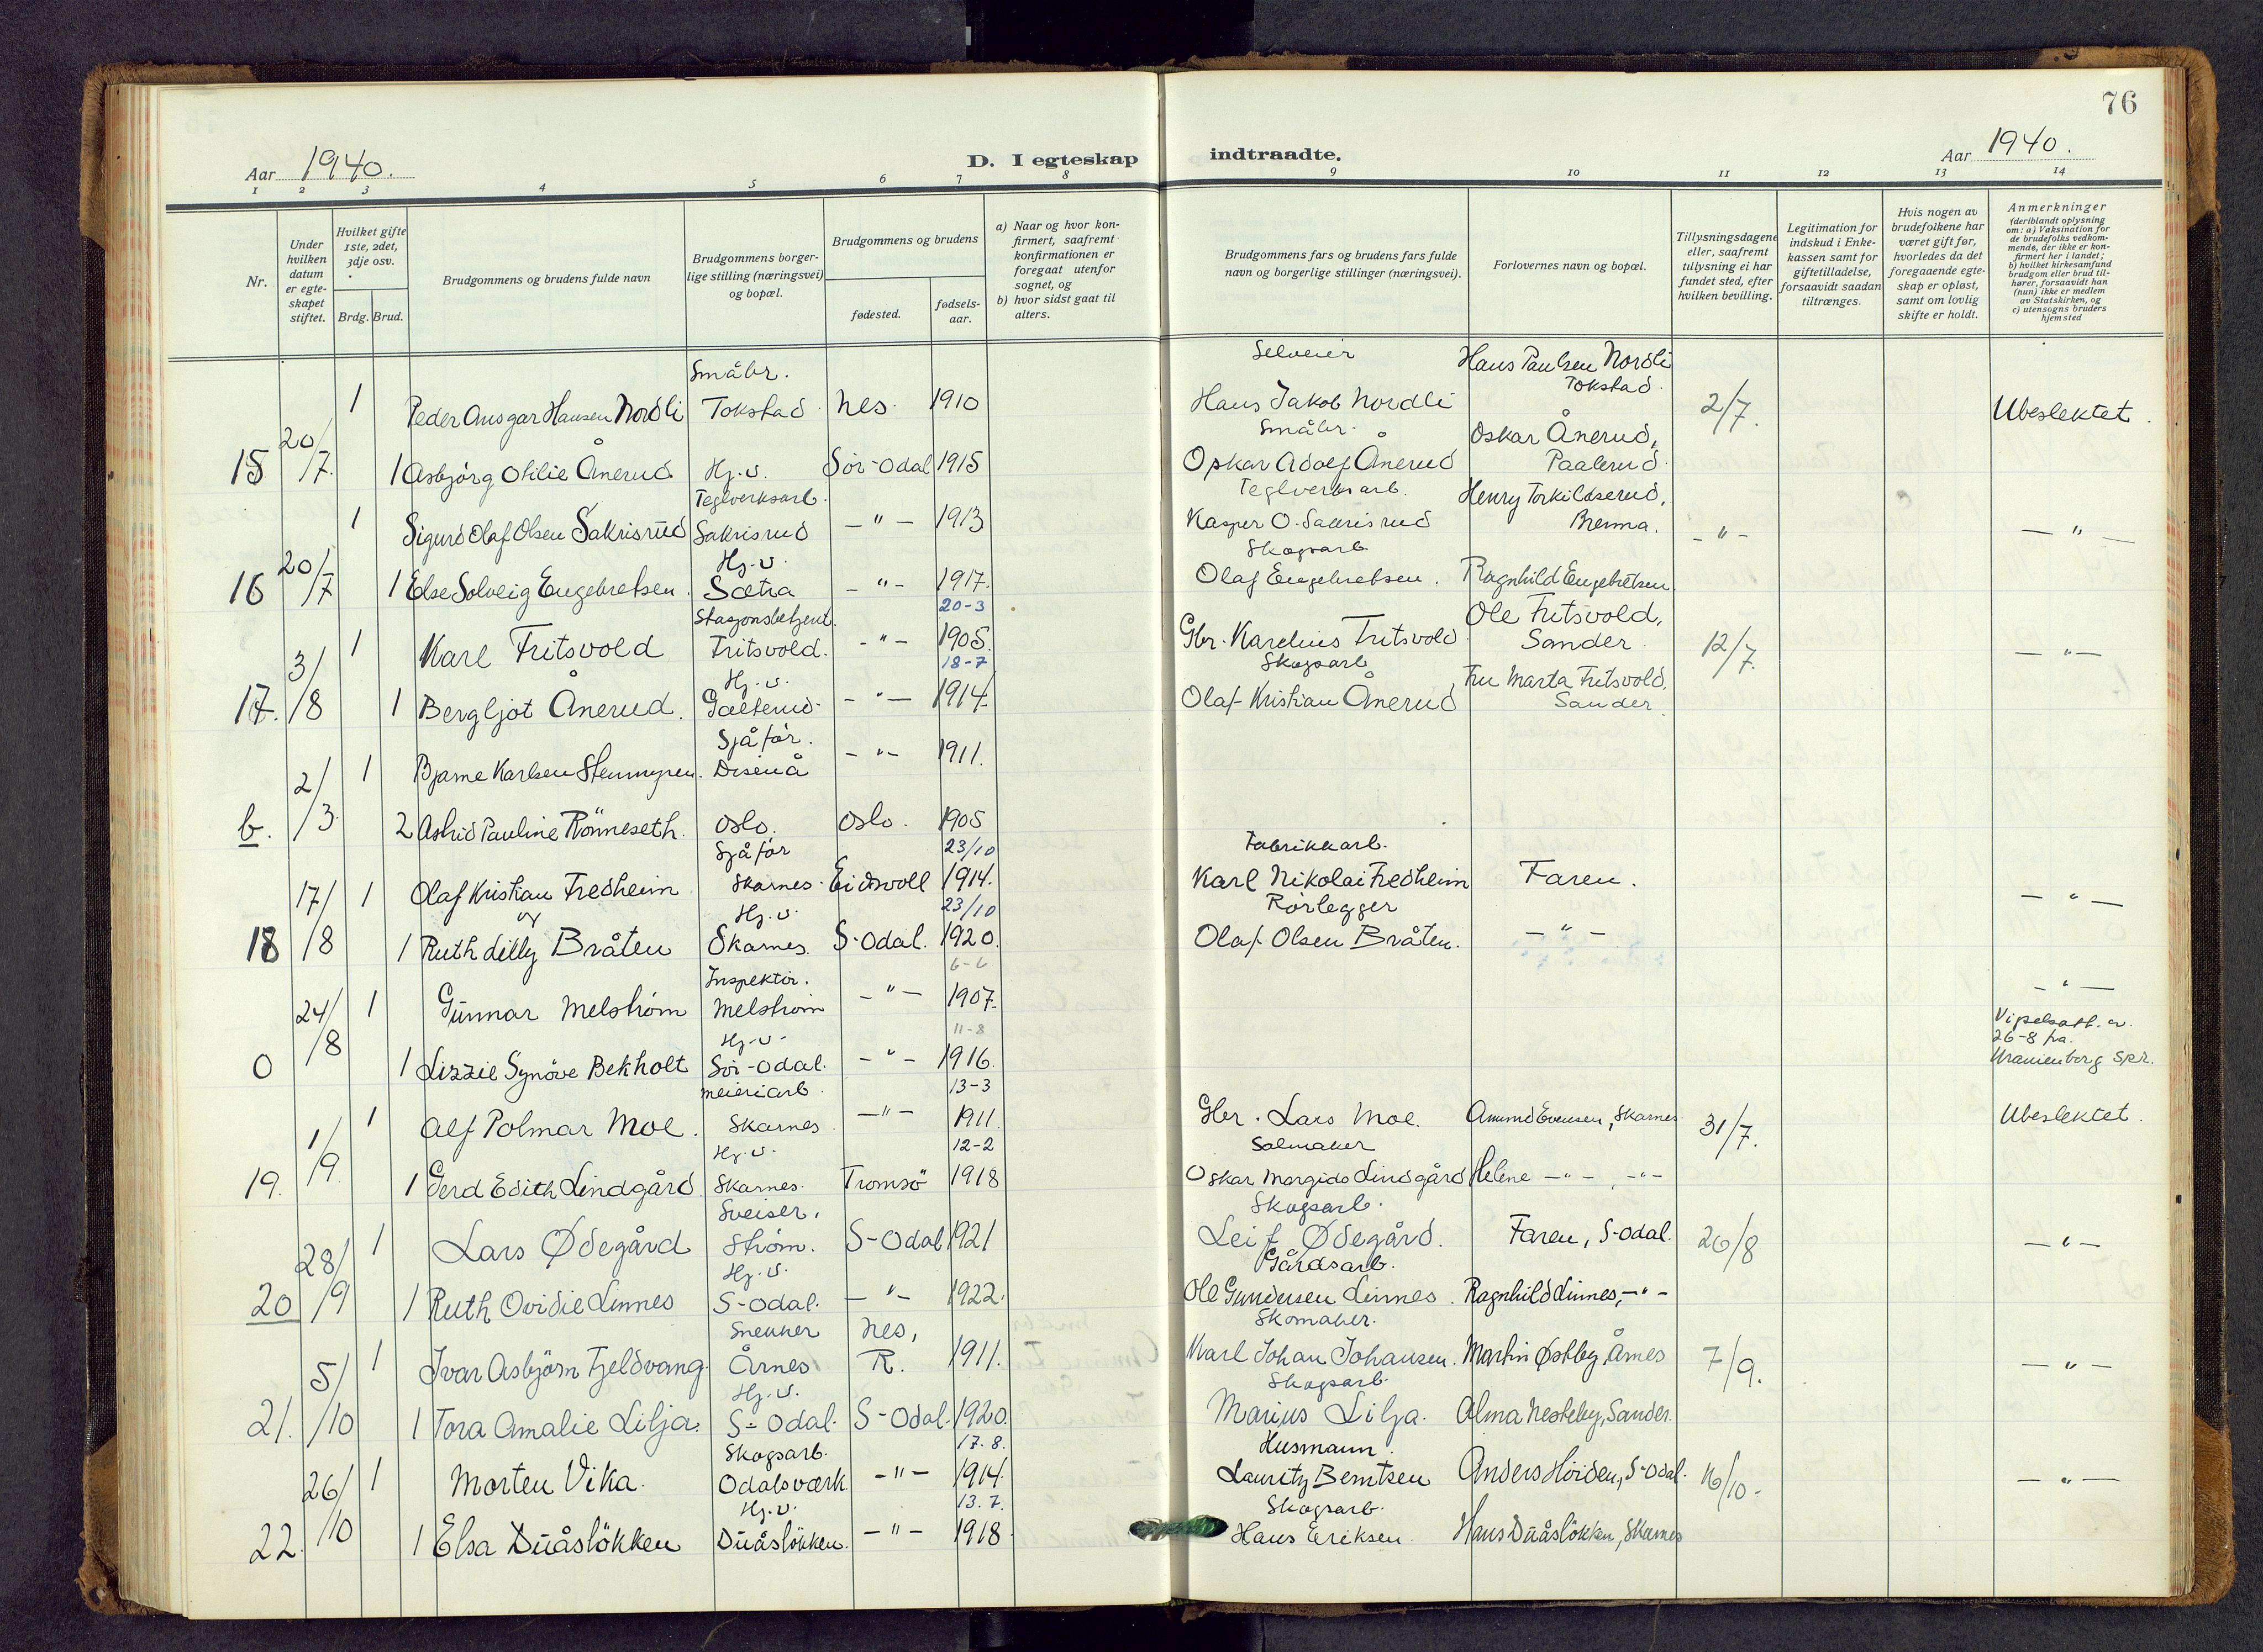 76
Aar 1940.
D. I egteskap indtraadte.
Aar 1940.
1 2 3 4 5 6 7 8 9 10 11 12 13 14
Nr.
Under hvilken datum er egteskapet stiftet.
Hvilket gifte 1ste, 2det, 3dje osv.
Brdg. Brud.
Brudgommens og brudens fulde navn
Brudgommens borgerlige stilling (næringsvei) og bopæl.
Brudgommens og brudens
fødested.
fødselsaar.
a) Naar og hvor konfirmert, saafremt konfirmationen er foregaat utenfor sognet, og
b) hvor sidst gaat til alters.
Brudgommens fars og brudens fars fulde navn og borgerlige stillinger (næringsvei).
Forlovernes navn og bopæl.
Tillysningsdagene eller, saafremt tillysning ei har fundet sted, efter hvilken bevilling.
Legitimation for indskud i Enkekassen samt for giftetilladelse, forsaavidt saadan tiltrænges.
Hvis nogen av brudefolkene har været gift før, hvorledes da det foregaaende egteskap er opløst, samt om lovlig skifte er holdt.
Anmerkninger
(deriblandt oplysning om: a) Vaksination for de brudefolks vedkommende, der ikke er konfirmert her i landet; b) hvilket kirkesamfund brudgom eller brud tilhører, forsaavidt han (hun) ikke er medlem av Statskirken, og c) utensogns bruders hjemsted
Småbr. Selveier Hans Paulsen Nordli
1 Peder Ansgar Hansen Nordli Tokstad Nes. 1910 Hans Jakob Nordli Tokstad. 2/7. Ubeslektet.
Småbr. Oskar Ånerud,
15 20/7. 1 Asbjörg Otilie Ånerud Hj.v. Sör-Odal 1915 Oskar Adolf Ånerud Paalerud.
Teglverksarb. Teglverksarb. Henry Torkildserud,
1 Sigurd Olaf Olsen Sakrisrud Sakrisrud -"- 1913 Kasper O. Sakrisrud Brenna. -"- -"-
Hj.v. Skogsarb.
16 20/7 1 Else Solveig Engebretsen. Sætra -"- 1917. Olaf Engebretsen. Ragnhild Engebretsen
Stasjonsbetjent. 20-3 Ole Fritsvold,
1 Karl Fritsvold Fritsvold. -"- 1905. Gbr. Karelius Fritsvold Sander. 12/7. -"-
Hj.v. 18-7 Skogsarb. Fru Marta Fritsvold,
17. 3/8 1 Bergljot Ånerud. -"- 1914. Olaf Kristian Ånerud Sander.
Sjåför.
1 Bjarne Karlsen Stenmyren. Disenå -"- 1911.
b. 2/3. 2 Astrid Pauline Rönneseth. Oslo. Oslo. 1905
Sjåför 23/10 Fabrikkarb.
1 Olaf Kristian Fredheim Skarnes. Eidsvoll 1914. Karl Nikolai Fredheim Faren. -"-
og Hj.v. 23/10 Rörlegger
18 17/8 1 Ruth Lilly Bråten Skarnes. S-Odal. 1920. Olaf Olsen Bråten. -"-
Inspektör. 6-6
1 Gunnar Melström Melström -"- 1907. -"-
Hj.v. 11-8 26-8 fra
0 24/8 1 Lizzie Synöve Bekholt Sör-Odal. -"- 1916. Uranienborg spr.
meieriarb. 13-3
1 Alf Polmar Moe. Skarnes. -"- 1911. Gbr. Lars Moe. Amund Evensen, Skarnes 31/7. Ubeslektet.
Hj.v. 12-2 Salmaker
19. 1/9 1 Gerd Edith Lindgård Skarnes. Tromsö 1918 Oskar Margido Lindgård Helene -"-, -"-
Sveiser. Skogsarb.
1 Lars Ødegård Ström. S-Odal 1921 Leif Ødegård. Faren, S-Odal. 26/8 -"-
Hj.v. Gårdsarb.
20 28/9 1 Ruth Ovidie Linnes S-Odal. -"- 1922. Ole Gundersen Linnes. Ragnhild Linnes, -"-
Snekker Nes, Skomaker.
1 Ivar Asbjörn Fjeldvang. Årnes R. 1911. Karl Johan Johansen. Martin Østby, Årnes 7/9. -"-
Hj.v. Skogsarb.
21. 5/10 1 Tora Amalie Lilja. S-Odal. S-Odal. 1920. Marius Lilja. Alma Nesteby, Sander.
Skogsarb. 17.8. Husmann.
1 Morten Vika. Odalsværk. -"- 1914. Lauritz Berntsen Anders Höiden, S-Odal. 16/10. -"-
Hj.v. 13.7. Skogsarb.
22. 26/10 1 Elsa Duåslökken Duåslökken. -"- 1918. Hans Eriksen. Hans Duåslökken, Skarnes